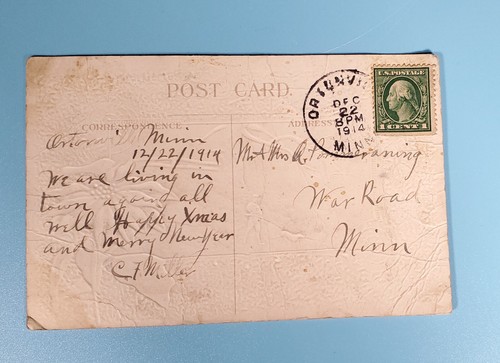 POST CARD.
CORRESPONDENCE
ADDRESS
ORTONVILLE
DEC
22
8PM
1914
MINN
U.S. POSTAGE
1 CENT 1
Ortonville Minn
12/22/1914
We are living in
town again all
well Happy Xmas
and Merry New Year
C F Miller
Mr & Mrs
War Road
Minn